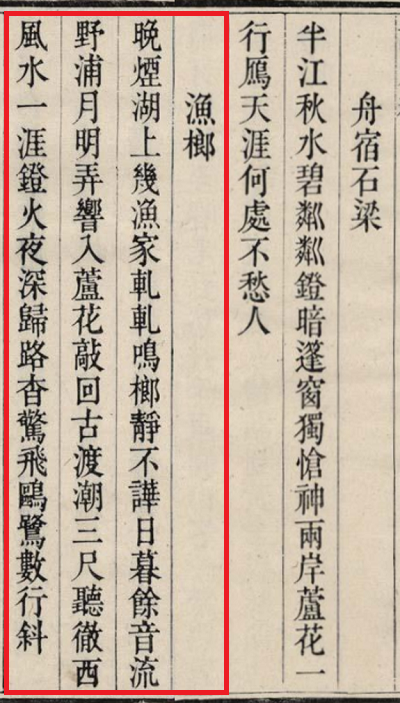 舟宿石梁
半江秋水碧粼粼鐙暗蓬窗獨愴神兩岸蘆花一
行鴈天涯何處不愁人
漁榔
晚煙湖上幾漁家軋軋鳴榔靜不譁日暮餘音流
野浦月明弄響入蘆花敲回古渡潮三尺聽徹西
風水一涯鐙火夜深歸路杳驚飛鷗鷺數行斜